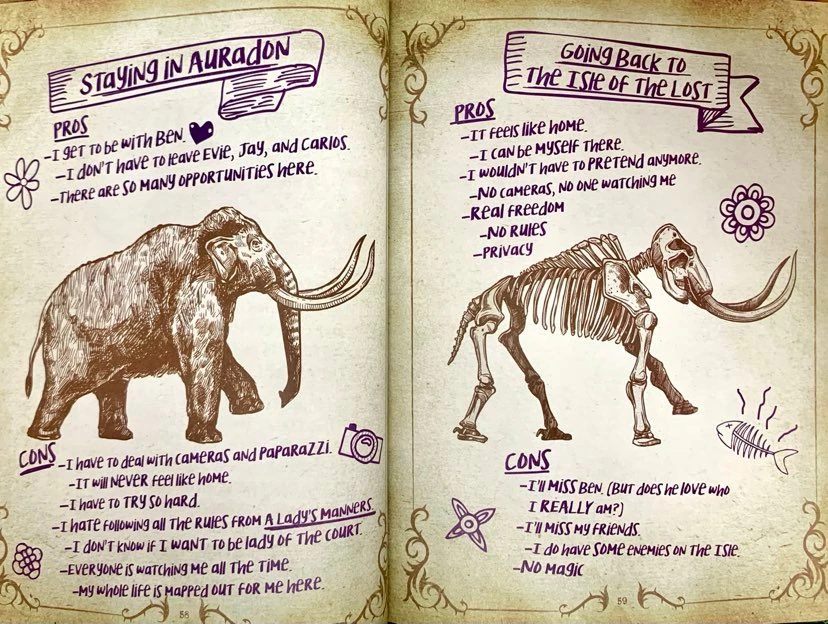 Staying in Auradon
PROS
-I get to be with Ben.
-I don't have to leave Evie, Jay, and Carlos.
-There are so many opportunities here.
CONS
-I have to deal with cameras and paparazzi.
-It will never feel like home.
-I have to try so hard.
-I hate following all the rules from A Lady's Manners.
-I don't know if I want to be lady of the court.
-Everyone is watching me all the time.
-My whole life is mapped out for me here.
58
Going Back to
The Isle of the Lost
PROS
-It feels like home.
-I can be myself there.
-I wouldn't have to pretend anymore.
-No cameras, no one watching me
-Real freedom
-No rules
-Privacy
CONS
-I'll miss Ben. (But does he love who
I REALLY am?)
-I'll miss my friends.
-I do have some enemies on the Isle.
-No magic
59